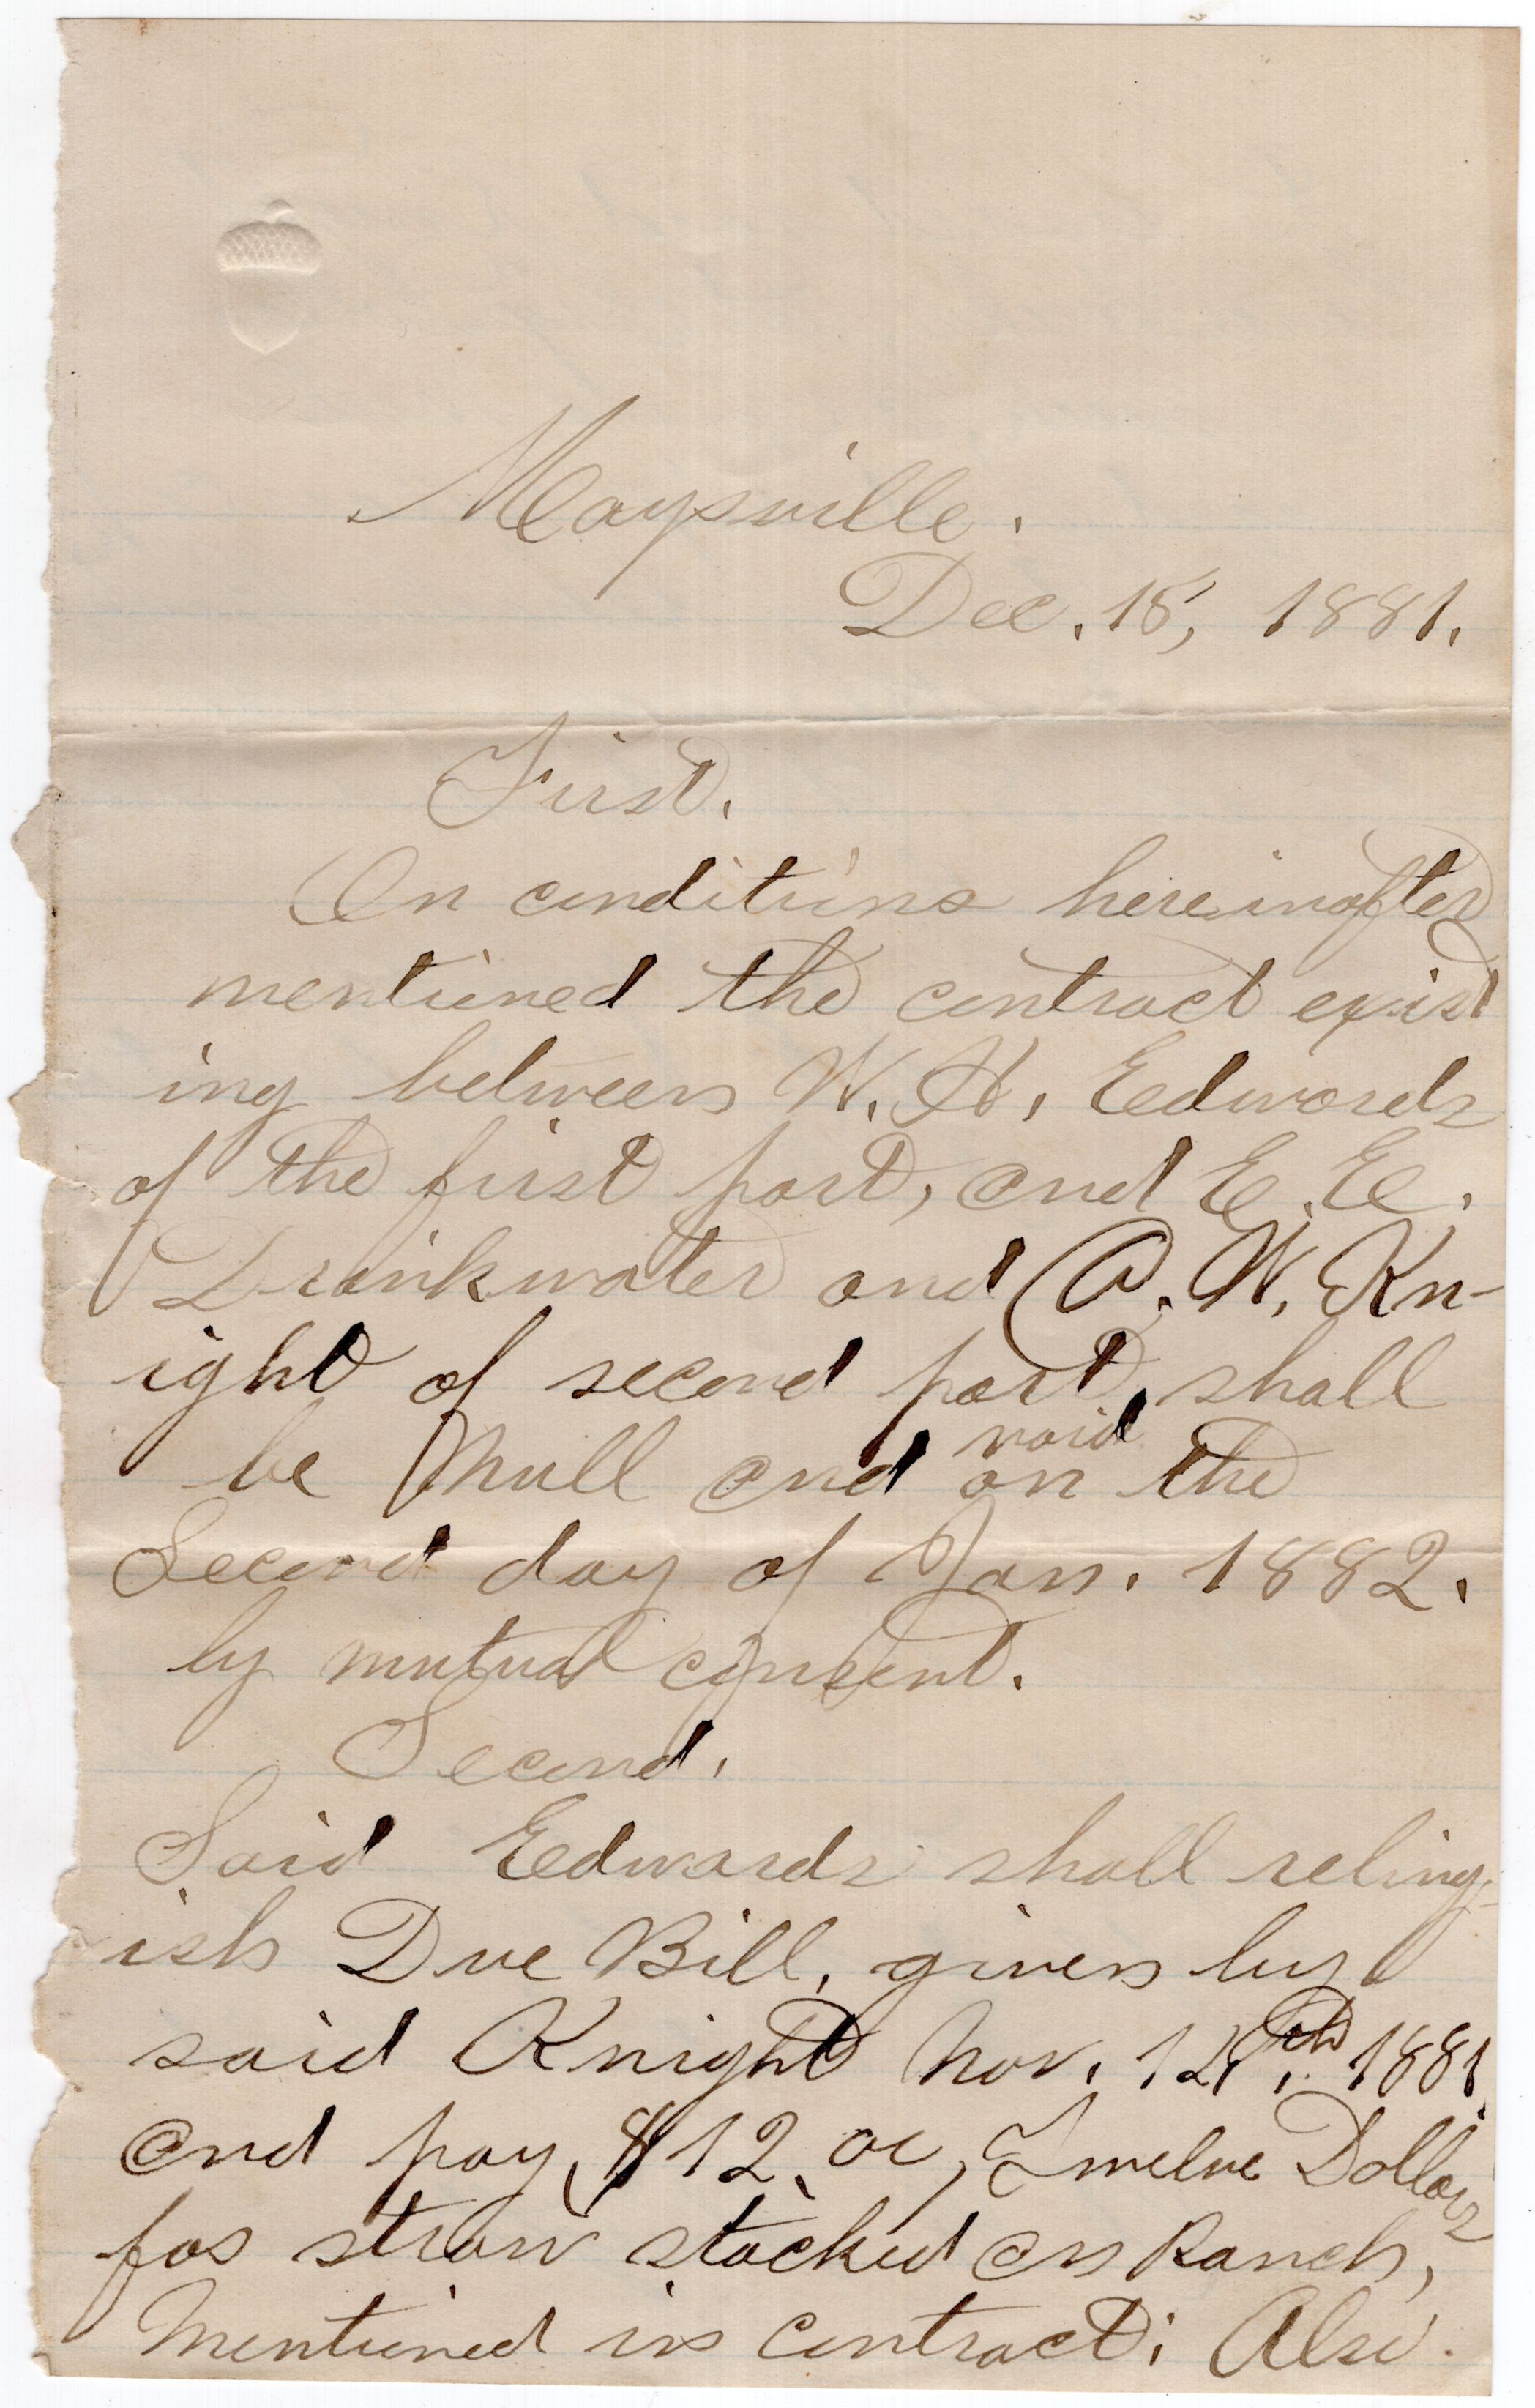 Maysville.
Dec. 15, 1881.
First.
On conditions hereinafter
mentioned the contract exist
ing between W. H. Edwards
of the first part, and E. E.
Drinkwater and A. W. Kn-
ight of second part, shall
be Null and void on the
Second day of Jan. 1882.
by mutual consent.
Second.
Said Edwards shall relinq-
ish Due Bill, given by
said Knight Nov. th 1881
and pay $12. oo, Twelve Dollars
for straw stacked on Ranch,
Mentioned in contract; Also.